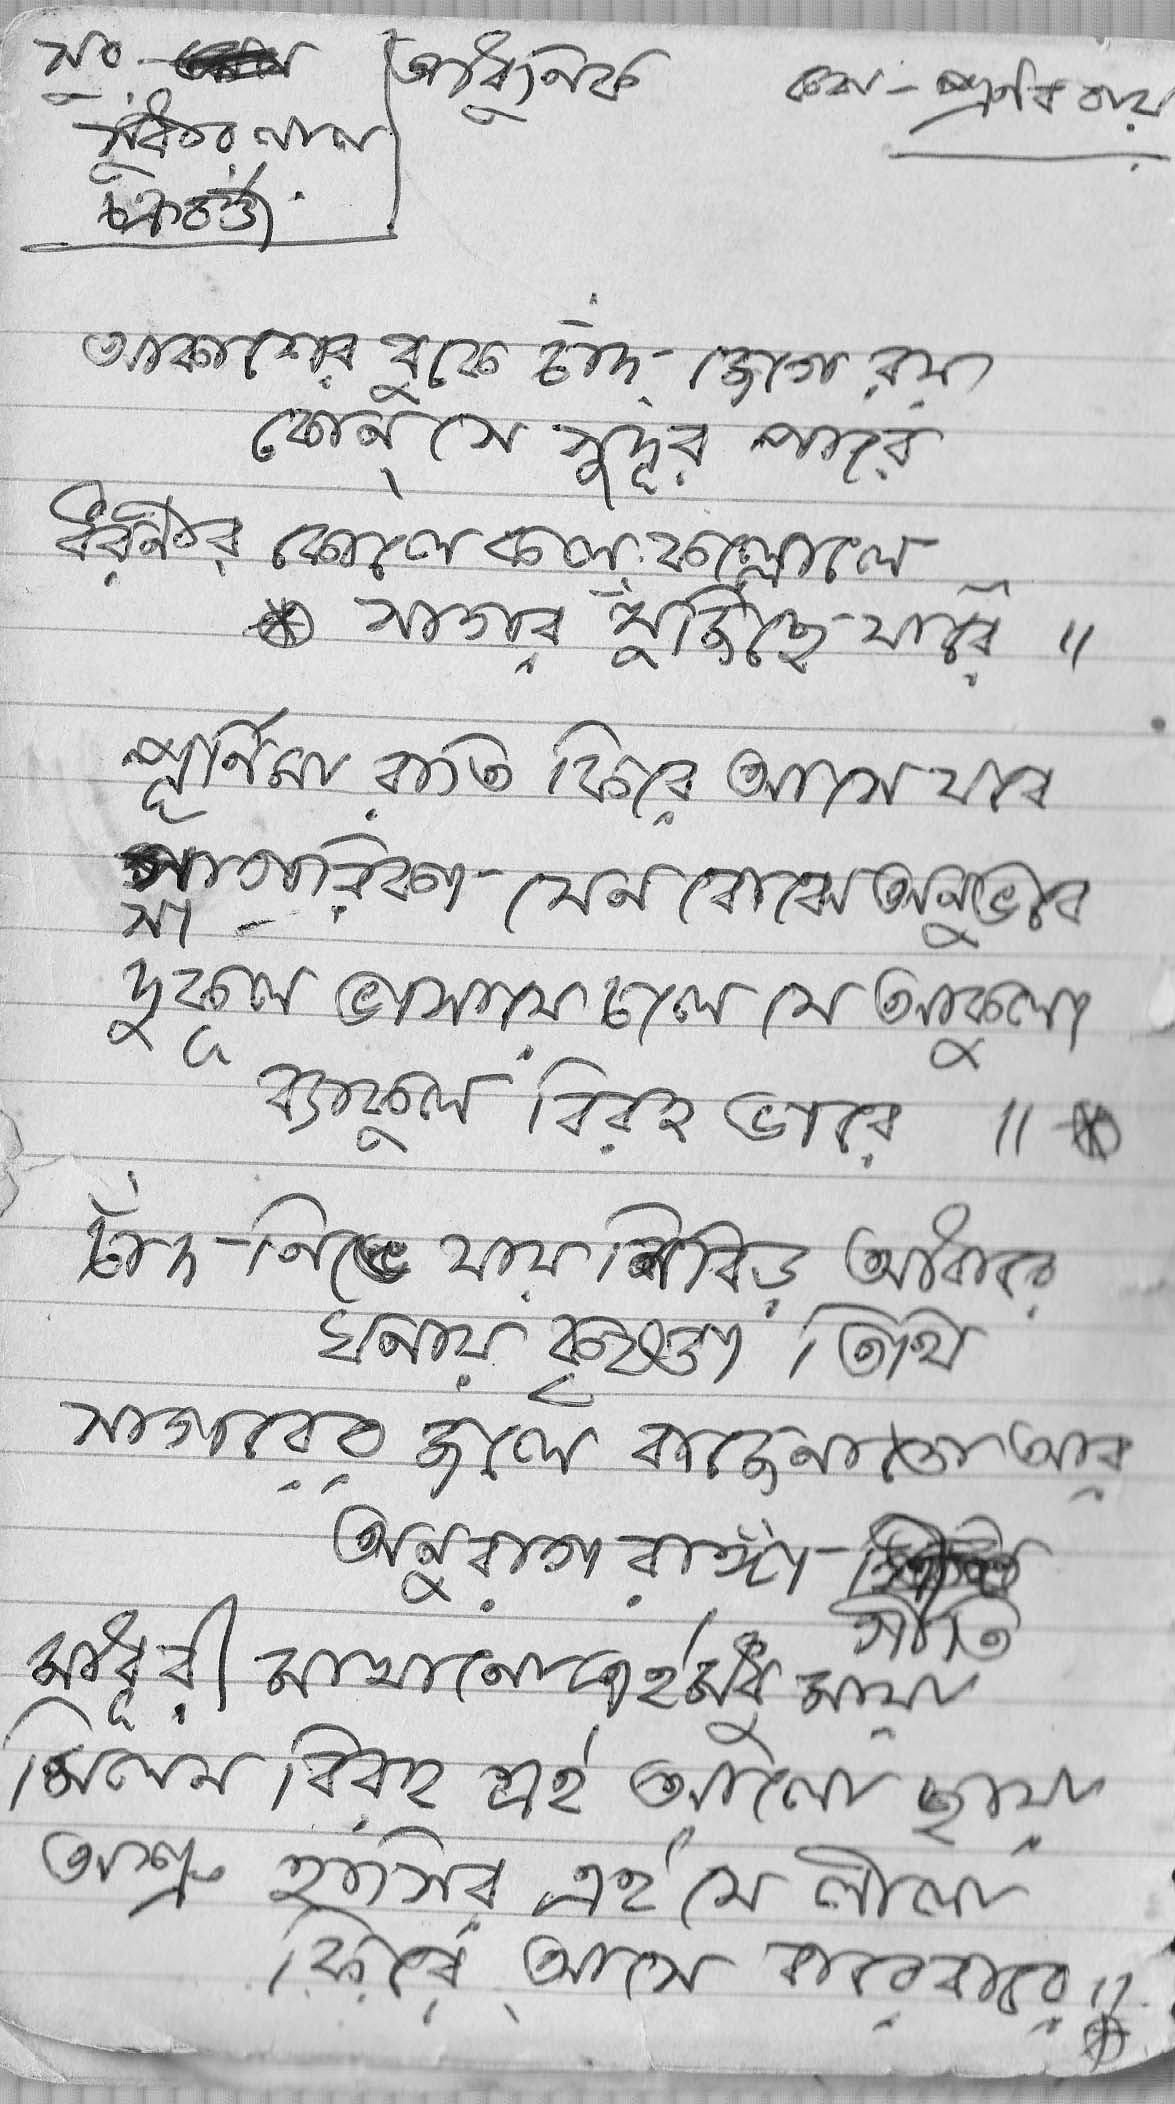 সুর - আধুনিক কথা - প্রণব রায়
সুধীরলাল
চক্রবর্ত্তী
আকাশের বুকে চাঁদ জেগে রয়
কোন্ সে সুদূর পারে
ধরণীর কোলে কল কল্লোলে
সাগর খুঁজিছে যারে ॥
পূর্ণিমা রাতি ফিরে আসে যবে
সাগরিকা যেন বোঝে অনুভবে
দুকূল ভাসায়ে চলে সে আকুল
ব্যাকুল বিরহ ভারে ॥
চাঁদ নিভে যায় নিবিড় আঁধারে
ঘনায় কৃষ্ণা তিথি
সাগরের জলে বাজেনাতো আর
অনুরাগ রাঙ্গা
গীতি
মাধুরী মাখানো এই মধু মায়া
মিলন বিরহ এই আলো ছায়া
অশ্রু হাসির এই সে লীলা
ফিরে আসে বারে বারে ॥